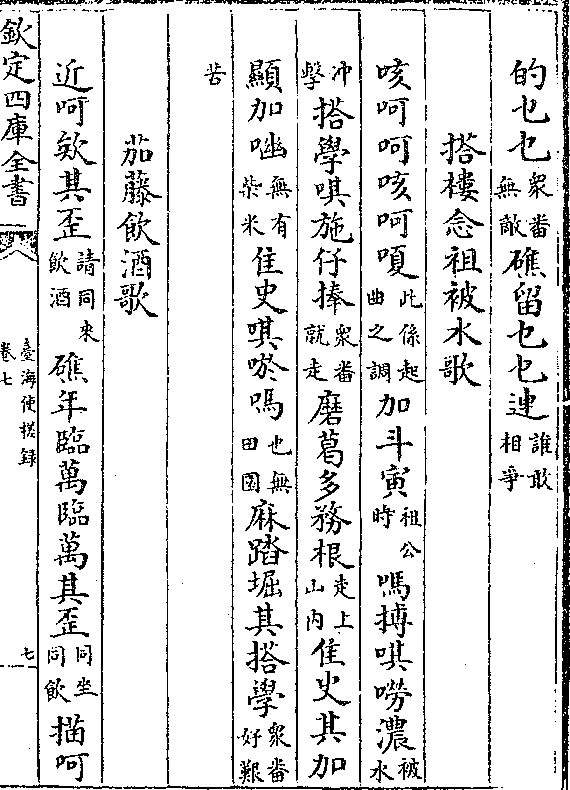 的乜乜衆番無敵礁留乜乜連誰敢相爭
搭樓念祖被水歌
咳呵呵咳呵嗄此係起曲之調加斗寅祖公時嗎搏唭嘮濃被水
沖擊搭學唭施仔捧衆番就走磨葛多務根走上山內隹史其加
顯加㕭無有柴米隹史唭唹嗎也無田園麻踏堀其搭學衆番好艱
苦
茄藤飲酒歌
近呵欸其歪請同來飲酒礁年臨萬臨萬其歪同坐同飲描呵
欽定四庫全書
臺海使槎録
卷七
七